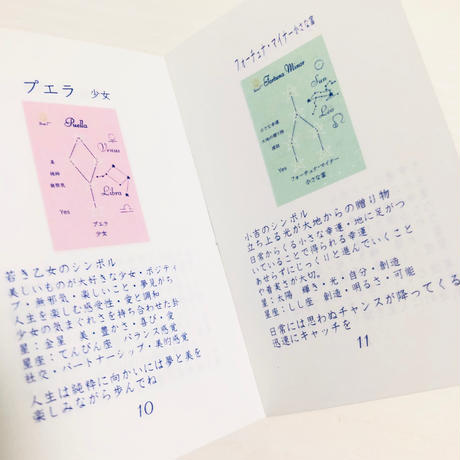 プエラ 少女
Puella
Venus
美
純粋
無邪気
Libra
Yes
プエラ
少女
若き乙女のシンボル
美しいものが大好きな少女・ポジティ
ブ・無邪気・楽しいこと・夢見がち
人生を楽しむ感受性・愛と調和
少女の気まぐれさを持ち合わせた卦
星：金星 美・豊かさ・喜び・愛
星座：てんびん座 バランス感覚
社交・パートナーシップ・美的感覚
人生は純粋に向かいには夢と美を
楽しみながら歩んでね
10
フォーチュナ・マイナー小さな富
Fortuna Minor
Sun
Leo
小さな幸運
大地の贈り物
援助
Yes
フォーチュナ・マイナー
小さな富
小吉のシンボル
立ち上る光が大地からの贈り物
日常からくる小さな幸運・地に足がつ
いていることで得られる幸運
あせらずにじっくりと進んでいくこと
や着実さが大切。
星：太陽 輝き・光・自分・創造
星座：しし座 創造・明るさ・可能
日常には思わぬチャンスが降ってくる
迅速にキャッチを
11